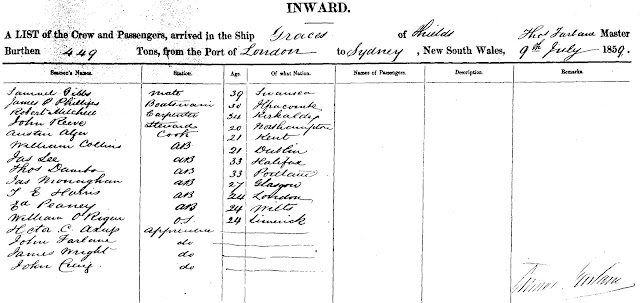 INWARD.
A LIST of the Crew and Passengers, arrived in the Ship Graces of Shields Thos Farlane Master
Burthen 449 Tons, from the Port of London to Sydney, New South Wales, 9th July 1859.
Seamen's Names. Station. Age. Of what Nation. Names of Passengers. Description. Remarks.
Samuel Gibbs Mate 39 Swansea
James P Phillips Boatswain 30 Ilfracombe
Robert Mitchell Carpenter 24 Kirkaldy
John Reeve Steward 20 Northampton
Austin Alger Cook 21 Kent
William Collins AB 21 Dublin
Jas Lee AB 33 Halifax
Thos Dambo AB 33 Portland
Jas Monaghan AB 27 Glasgow
T E Harris AB 24 London
Ed Peaney AB 24 Wilts
William O'Regan O.S. 24 Limerick
Hector C. Apprentice
John Farlane do
James Wright do
John Craig do
Thomas Farlane